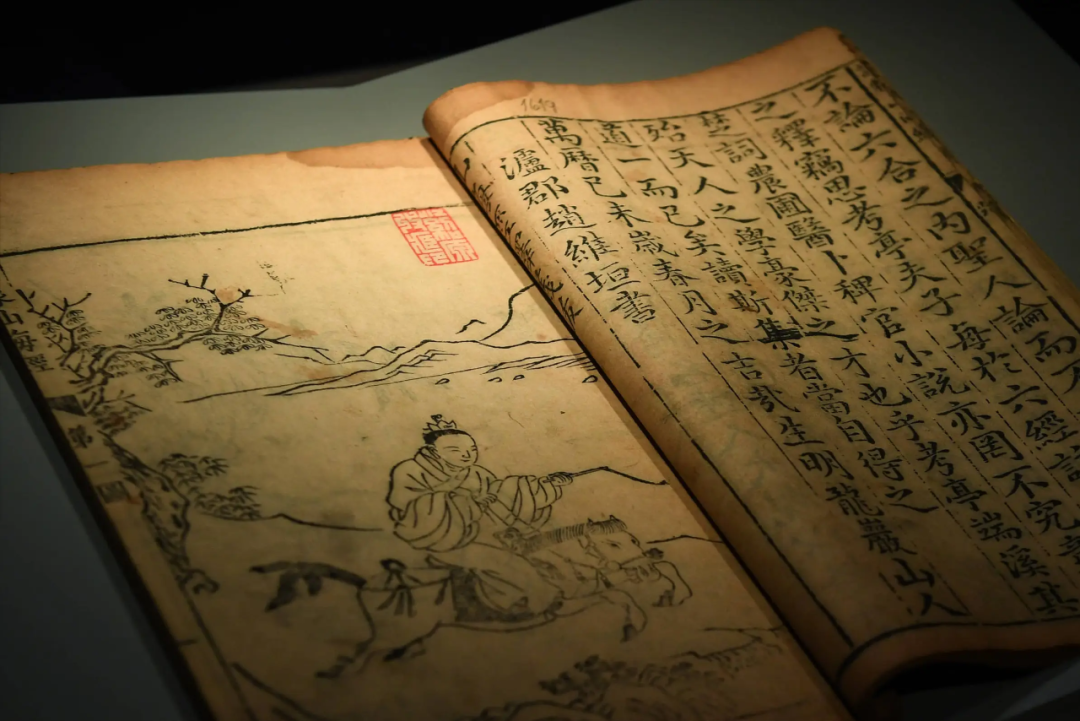 1619
不論六合之內聖人論而
之釋竊思考亭夫子每於六經
楚詞農圃醫卜稗官小說亦罔不究
殆天人之學豪傑之才也乎考亭端溪其
道一而已矣讀斯集者當自得之
萬曆己未歲春月之吉哉生明龍巖山人
瀘郡趙維垣書
山海經
第一圖